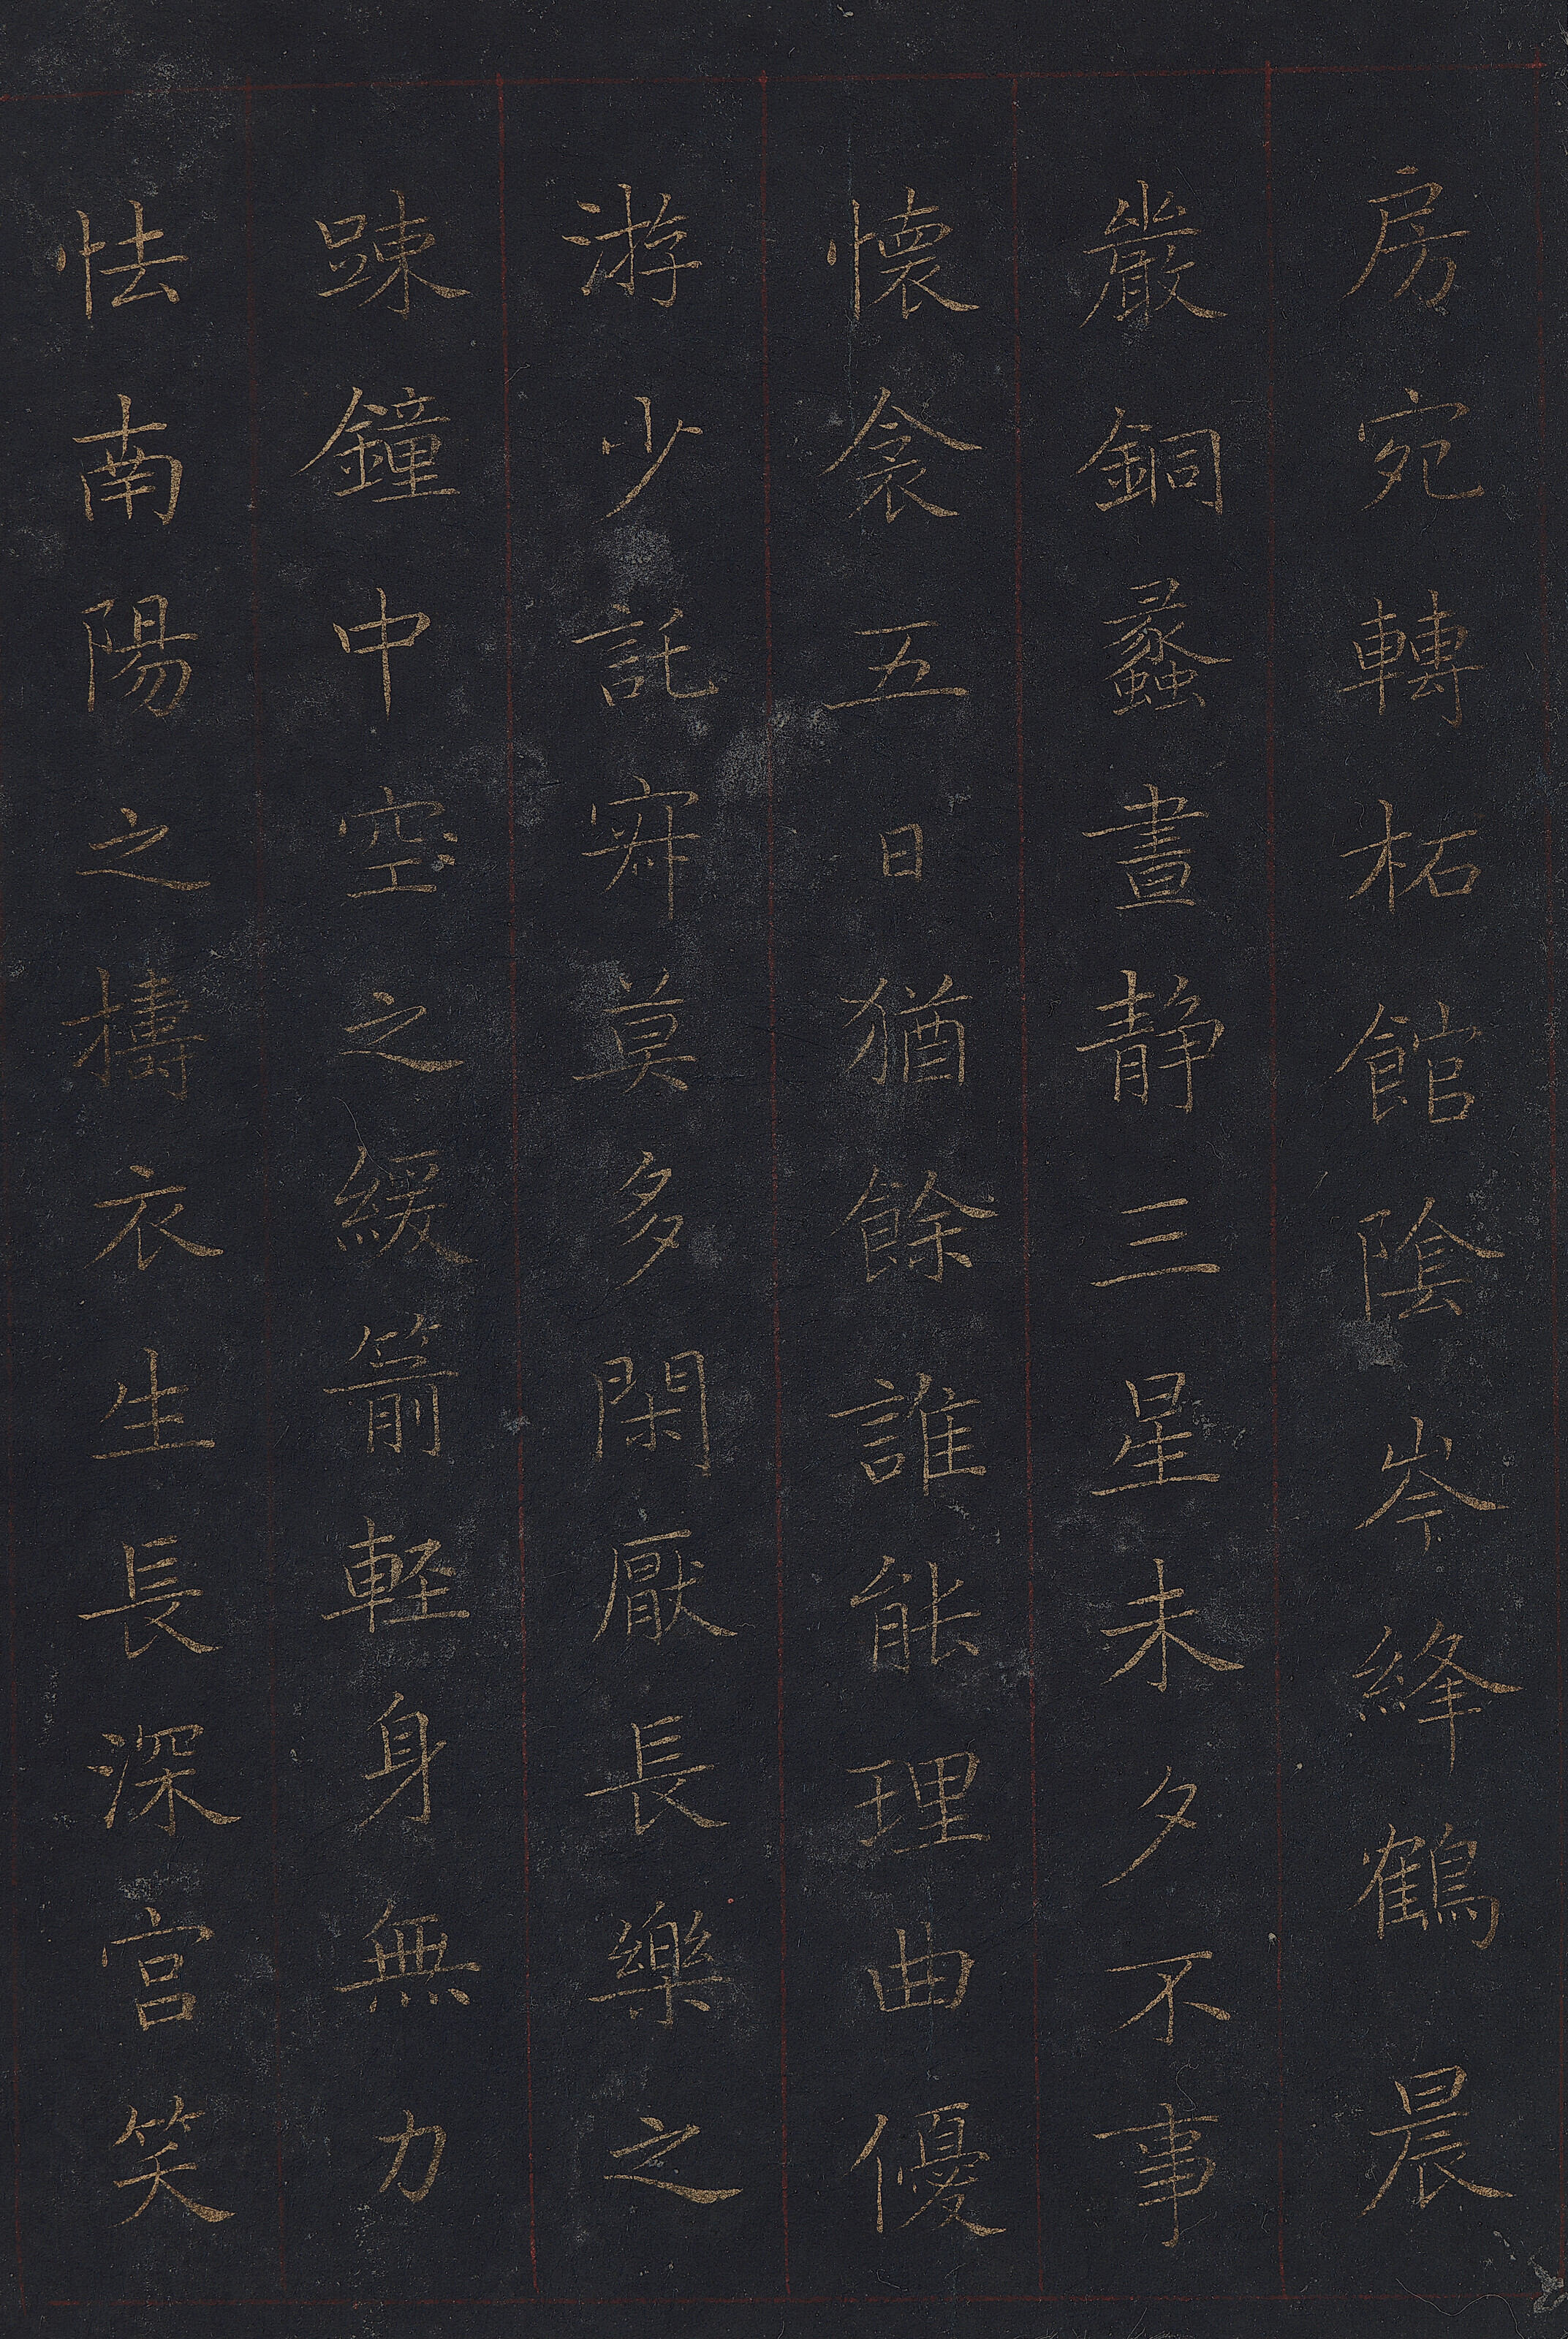 房宛轉柘館陰岑絳鶴晨
嚴銅蠡晝静三星未夕不事
懷衾五日猶餘誰能理曲優
游少託寂莫多閑厭長樂之
踈鐘中空之緩箭軽身無力
怯南陽之擣衣生長深宮笑